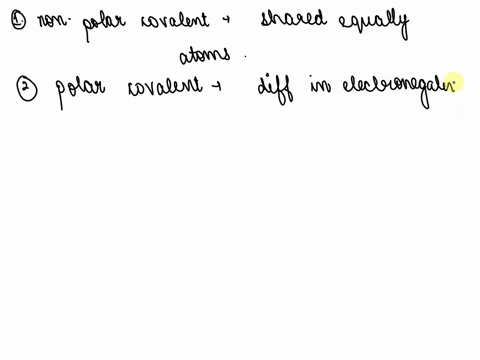 ① non-polar covalent → shared equally
atoms.
② polar covalent → diff in electronegativ